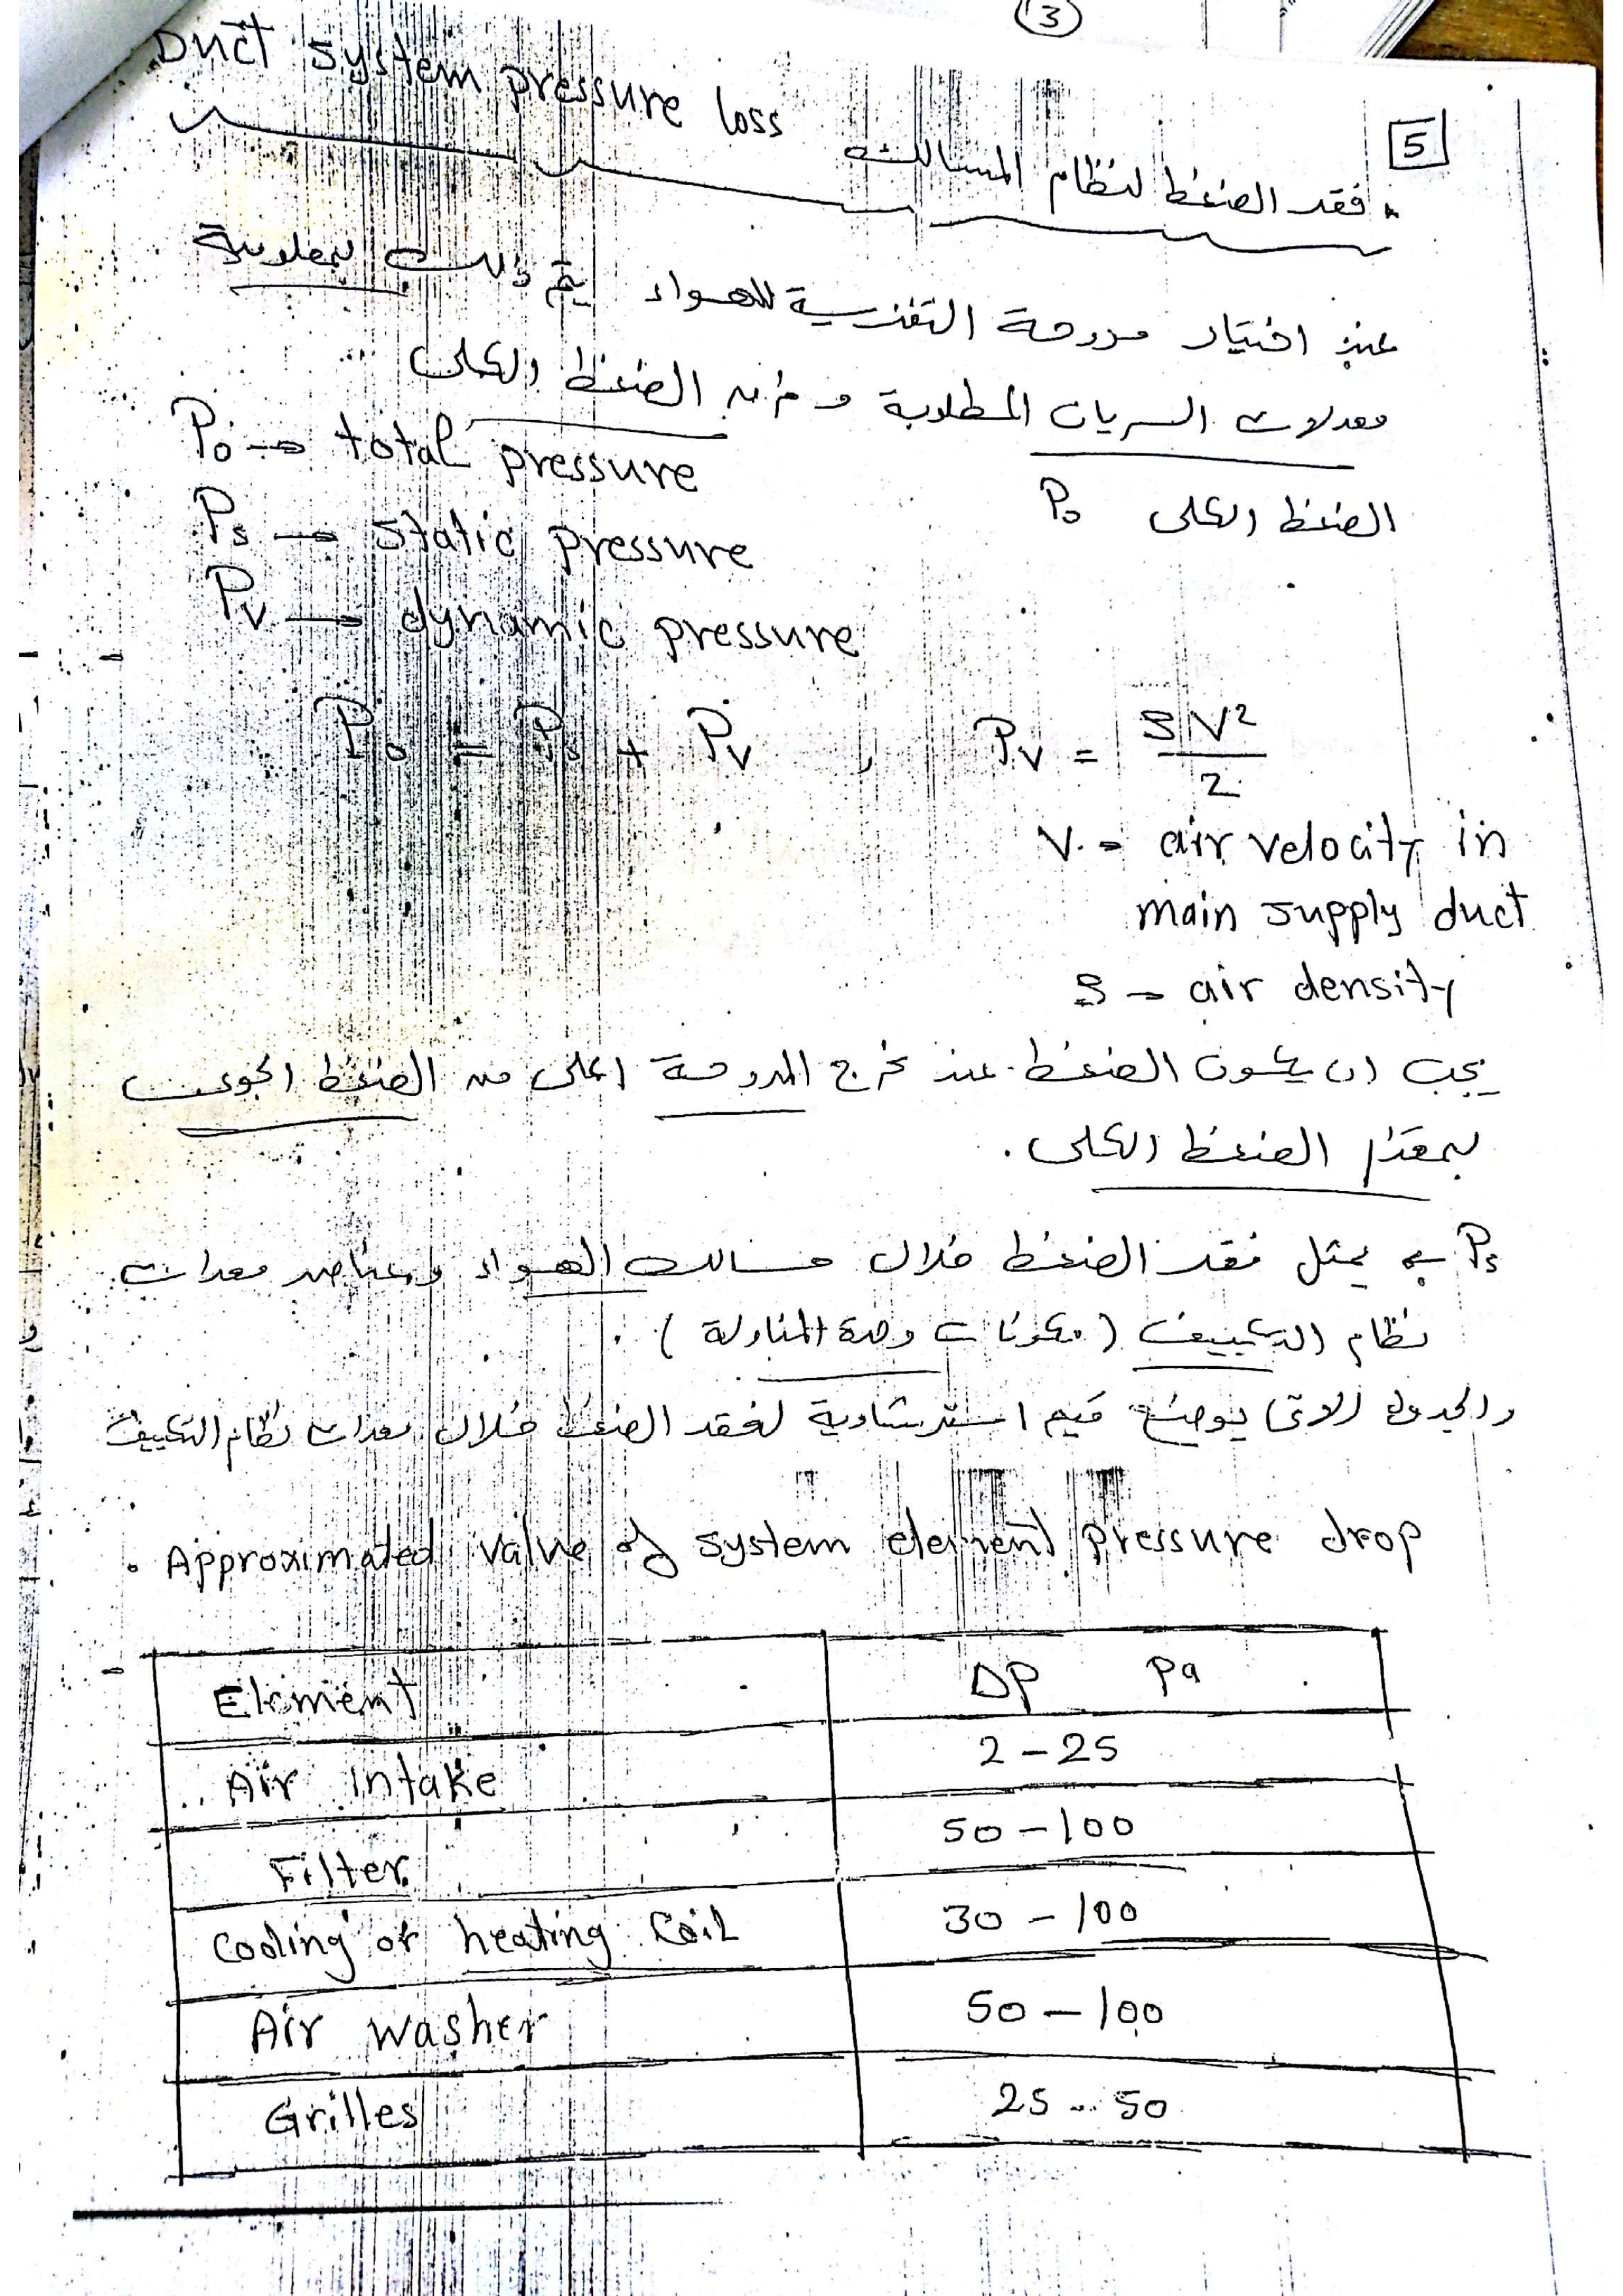 3
Duct system pressure loss
5
فقد الضغط لنظام المسالك
عند اختيار مروحة التغذية للهواء يتم ذلك بمعلومية
معدلات السريان المطلوبة و الضغط الكلى
P₀ → total pressure
الضغط الكلى P₀
Ps → static pressure
Pv → dynamic pressure
P₀ = Ps + Pv , Pv = ρV²/2
V = air velocity in
main supply duct
ρ = air density
يجب ان يكون الضغط عند مخرج المروحة اعلى من الضغط الجوى
بمقدار الضغط الكلى.
Ps ← يمثل فقد الضغط خلال مسالك الهواء وعناصر معدات
نظام التكييف (مكونات وحدة المناولة).
والجدول الاتى يوضح قيم استرشادية لفقد الضغط خلال معدات نظام التكييف
Approximated value of system element pressure drop
Element ΔP Pa
Air intake 2 - 25
Filter 50 - 100
Cooling or heating coil 30 - 100
Air washer 50 - 100
Grilles 25 - 50